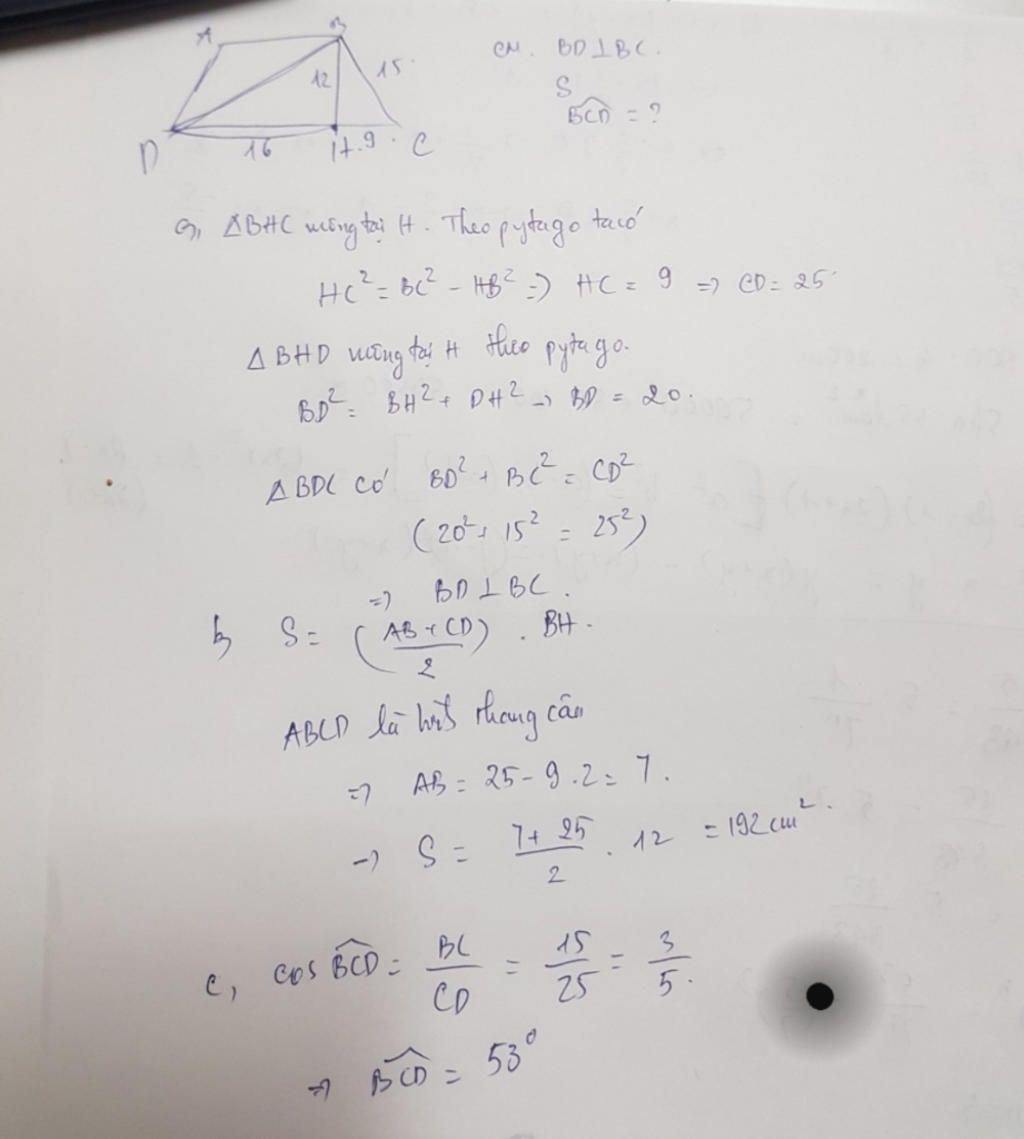 A B
12 15
D 16 H 9 C
CM. BD⊥BC.
S
BCD = ?
a, ΔBHC vuông tại H. Theo pytago ta có
HC² = BC² - HB² => HC = 9 => CD = 25
ΔBHD vuông tại H theo pytago.
BD² = BH² + DH² → BD = 20.
ΔBDC có BD² + BC² = CD²
(20² + 15² = 25²)
=> BD⊥BC.
b, S = (AB + CD)/2 . BH.
ABCD là hình thang cân
=> AB = 25 - 9.2 = 7.
→ S = (7 + 25)/2 . 12 = 192 cm².
c, cos BCD = BC/CD = 15/25 = 3/5.
=> BCD = 53⁰